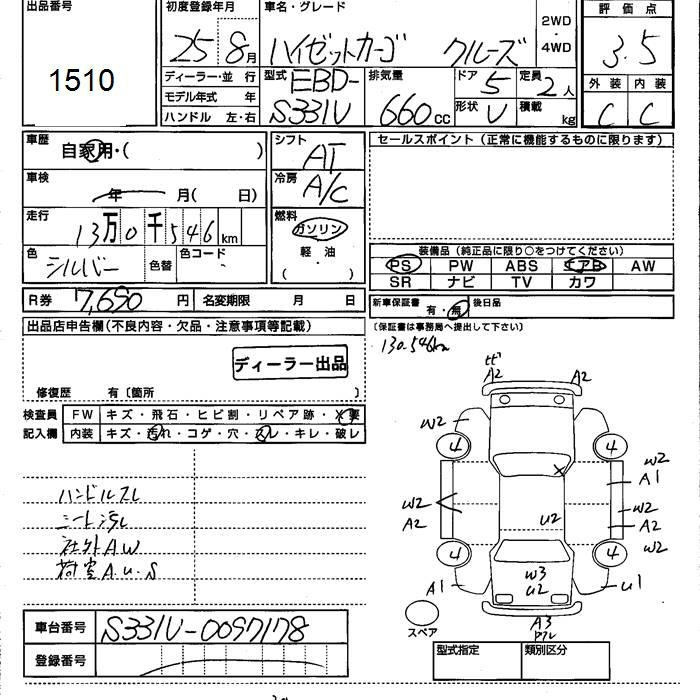 出品番号
1510
初度登録年月
25 8月
ディーラー・並 行
モデル年式 年
ハンドル 左・右
車名・グレード
ハイゼットカーゴ クルーズ
2WD
・
4WD
型式 EBD-
S331V
排気量
660 cc
ドア 5
形状 V
定員 2人
積載 kg
評 価 点
3.5
外 装 内 装
C C
車歴
自家用・( )
車検
年 月( 日)
走行
13万0千546km
色
シルバー 色替
色コード
シフト
AT
冷房
A/C
燃料
ガソリン
軽 油
( ・ )
セールスポイント(正常に機能するものに限ります)
装備品(純正品に限り○をつけてください)
PS PW ABS エアB AW
SR ナビ TV カワ
R券 7,690 円 名変期限 月 日
新車保証書 有・無 後日品
(保証書は事務局へ提出して下さい)
130.546km
出品店申告欄(不良内容・欠品・注意事項等記載)
ディーラー出品
修復歴 有〔箇所 〕
検査員
記入欄
FW キズ・飛石・ヒビ割・リペア跡・X要
内装 キズ・汚れ・コゲ・穴・スレ・キレ・破レ
ハンドルスレ
シート汚レ
社外AW
荷室A.U.S
A2 A2
W2
4 4
W2
A1
W2
A2
W2
A2
U2
4 4
W2
A1
W3
U2
U1
スペア
A3
車台番号 S331V-0097178
登録番号
型式指定 類別区分